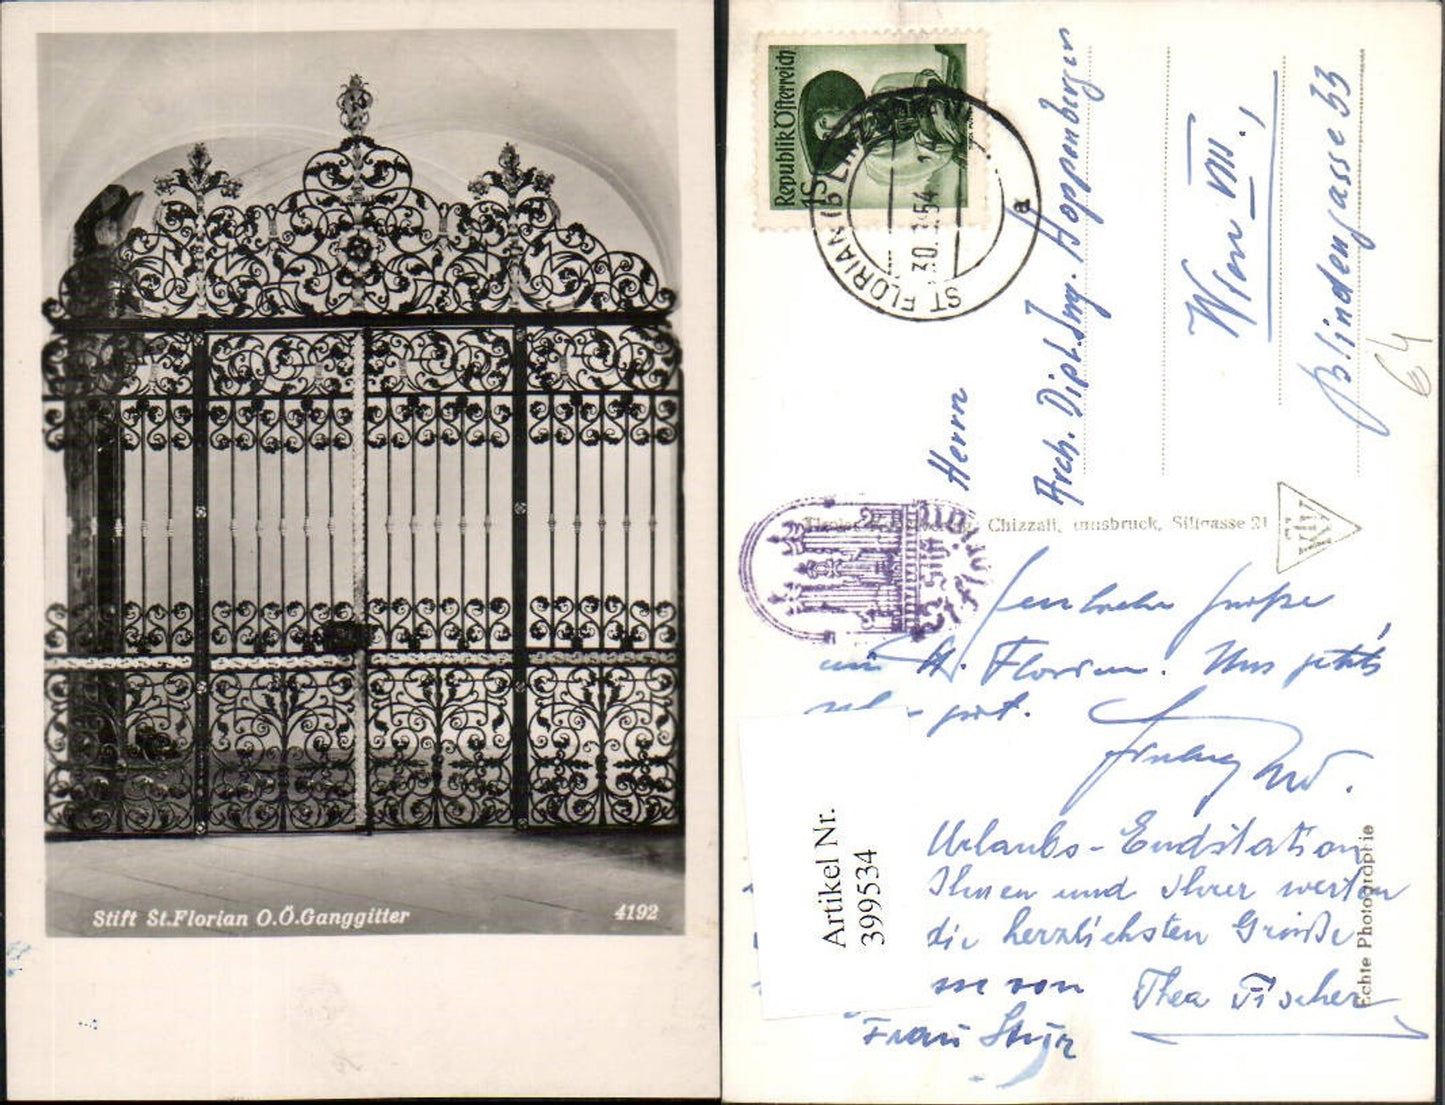 Stift St.Florian O.Ö.Ganggitter
4192
Republik Österreich
1S
ST FLORIAN
30. .54
a
Herrn
Arch. Dipl. Ing. Hoppenberger
Wien VIII.,
Blindengasse 33
64
Chizzali, Innsbruck, Sillgasse 21
Stift
St. Florian
Herzliche Grüße
St. Florian. Uns
gut.
Urlaubs-Endstation
Ihnen und Ihrer werten
die herzlichsten Grüße
von Thea Fischer
Frau
Echte Photographie
Artikel Nr.
399534